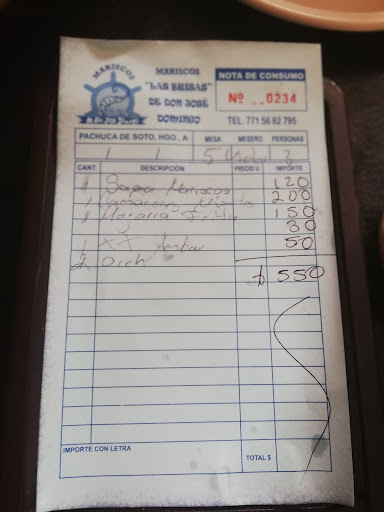 MARISCOS
MARISCOS
"LAS BRISAS"
DE DON JOSÉ
DOMINGO
NOTA DE CONSUMO
Nº 0234
TEL. 771 56 82 795
PACHUCA DE SOTO, HGO., A. MESA MESERO PERSONAS
5 3
CANT. DESCRIPCIÓN PRECIO U. IMPORTE
1 Sopa Mariscos 120
1 200
1 150
30
1 XX Ambar 50
2 Orch
$ 550
IMPORTE CON LETRA
TOTAL $